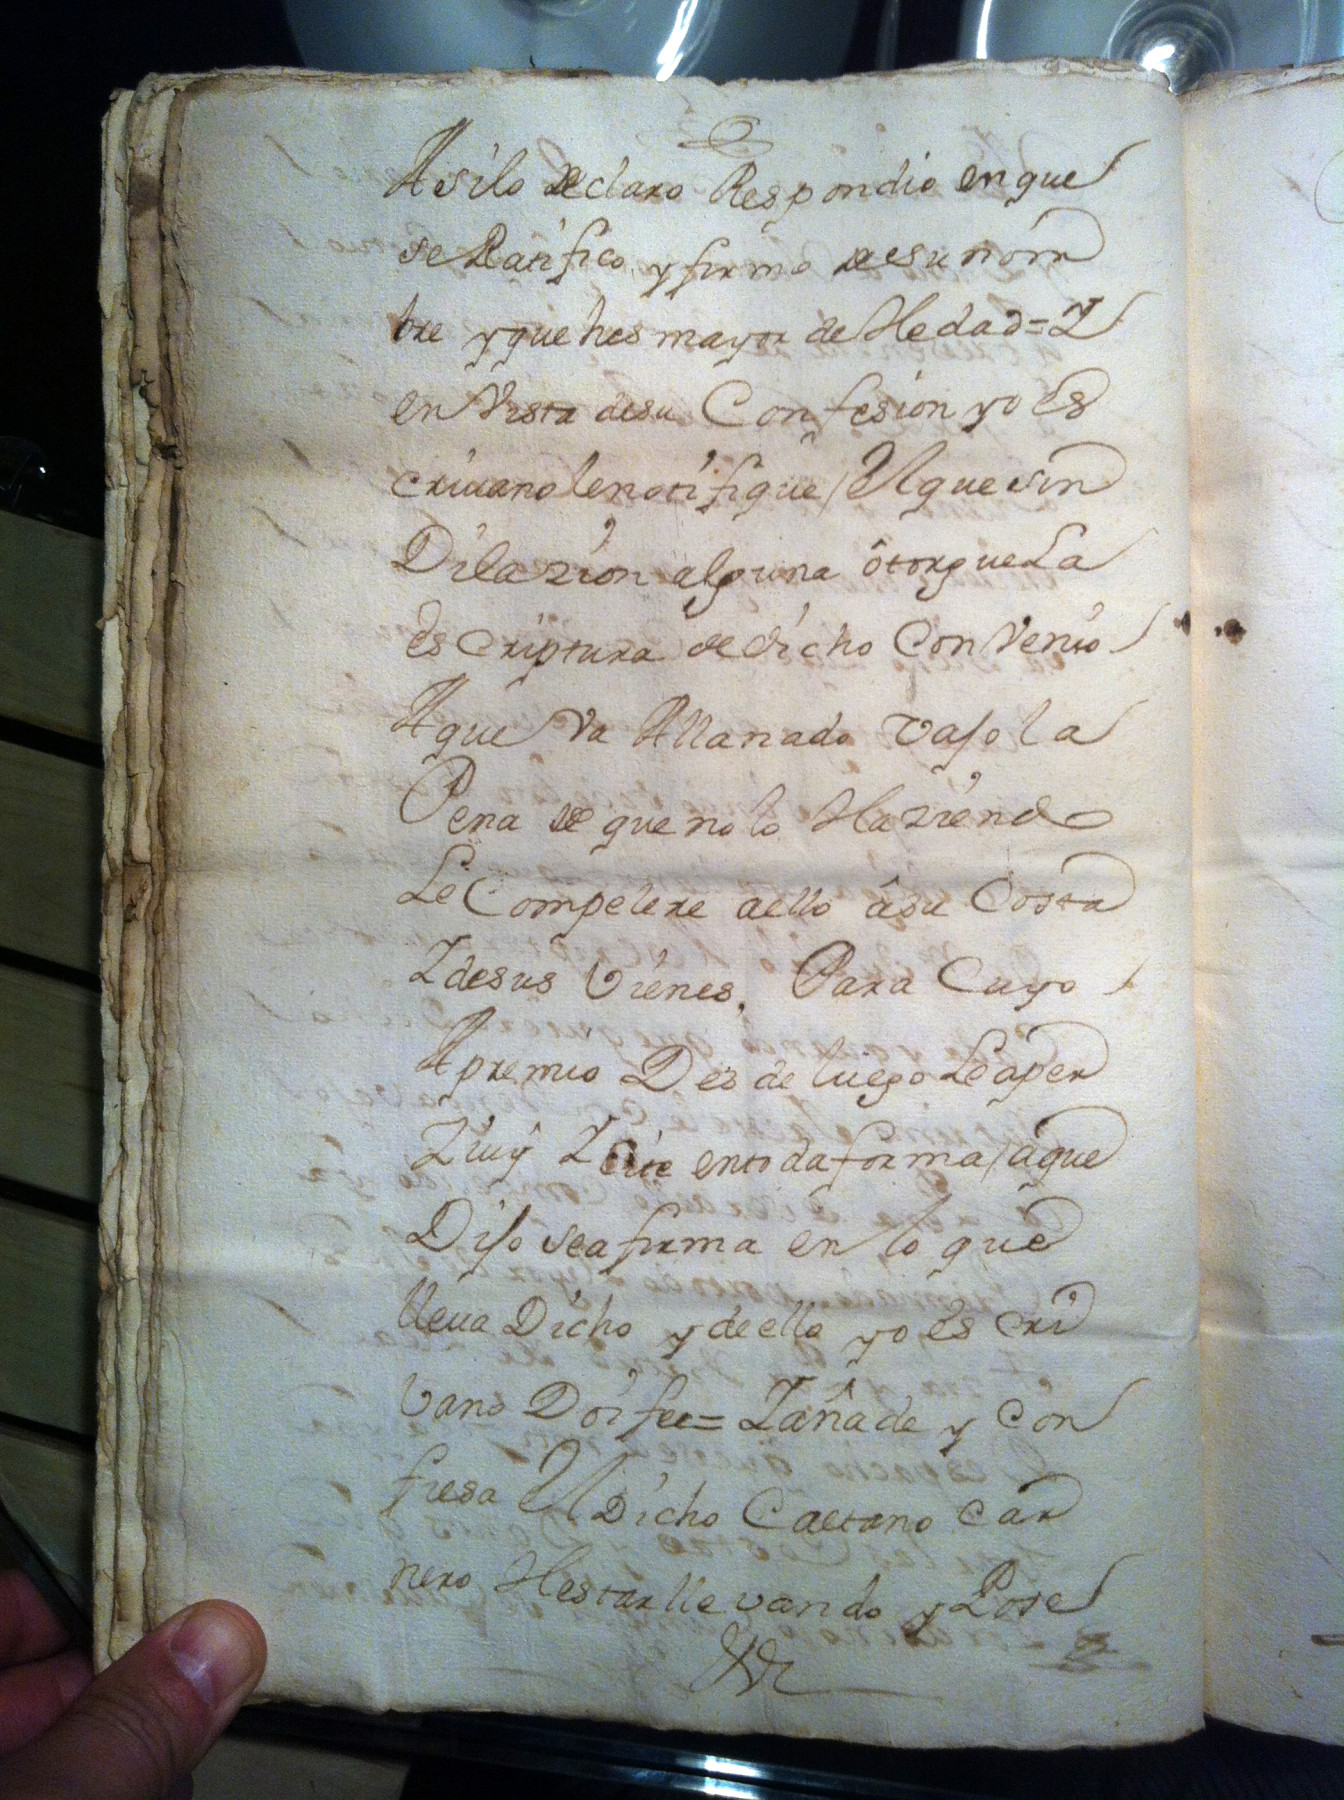 Asilo declaro Respondio en que
se Ratifico, y firmo de su nom
bre y que hes mayor de Hedad = Y
en Vista desu Confesion yo Es
criuano le notifique / Al que sin
Dilazion alguna ôtorgue La
Escriptura de dicho ConVenio
A que Va Allanado vajo la
Pena de que no lo Haziendo
Le Compelere aello âsu Costa
Y desus Vienes, Para Cuyo
Apremio Des de luego Le aper
Ziuij Y Cite en toda forma / âque
Dijo se afirma en lo que
lleua Dicho y de ello yo Escri
vano Doi fee = Y añade y con
fiesa Al Dicho Caetano Car
nero Hestar lle vando y Pose